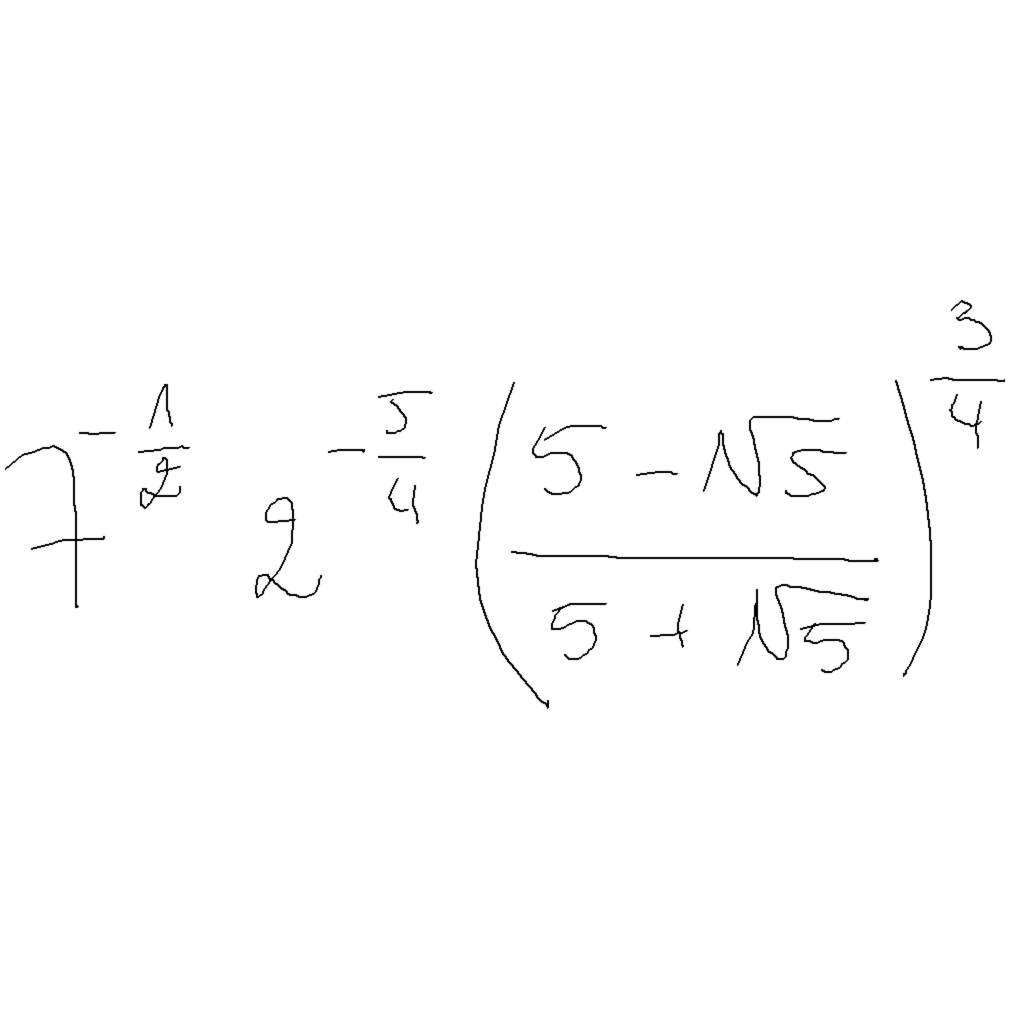 $7^{-\frac{1}{2}} 2^{-\frac{5}{4}} \left( \frac{5 - \sqrt{5}}{5 + \sqrt{5}} \right)^{\frac{3}{4}}$